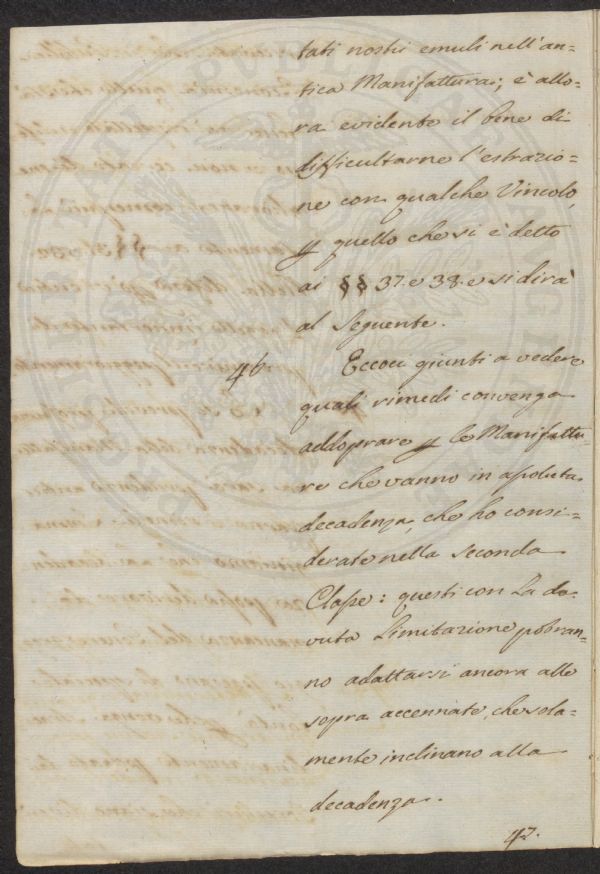 tati nostri emuli nell'an=
tica Manifattura; è allo=
ra evidente il bene di
difficultarne l'estrazio=
ne con qualche Vincolo,
p quello che si è detto
ai §§ 37. e 38. e si dirà
al Seguente.
46. Eccoci giunti a vedere
quali rimedi convenga
addoprare p le Manifattu=
re che vanno in assoluta
decadenza, che ho consi=
derate nella seconda
Classe: questi con La do=
vuta Limitazione potran=
no adattarsi ancora alle
sopra accennate, che sola=
mente inclinano alla
decadenza.
47.